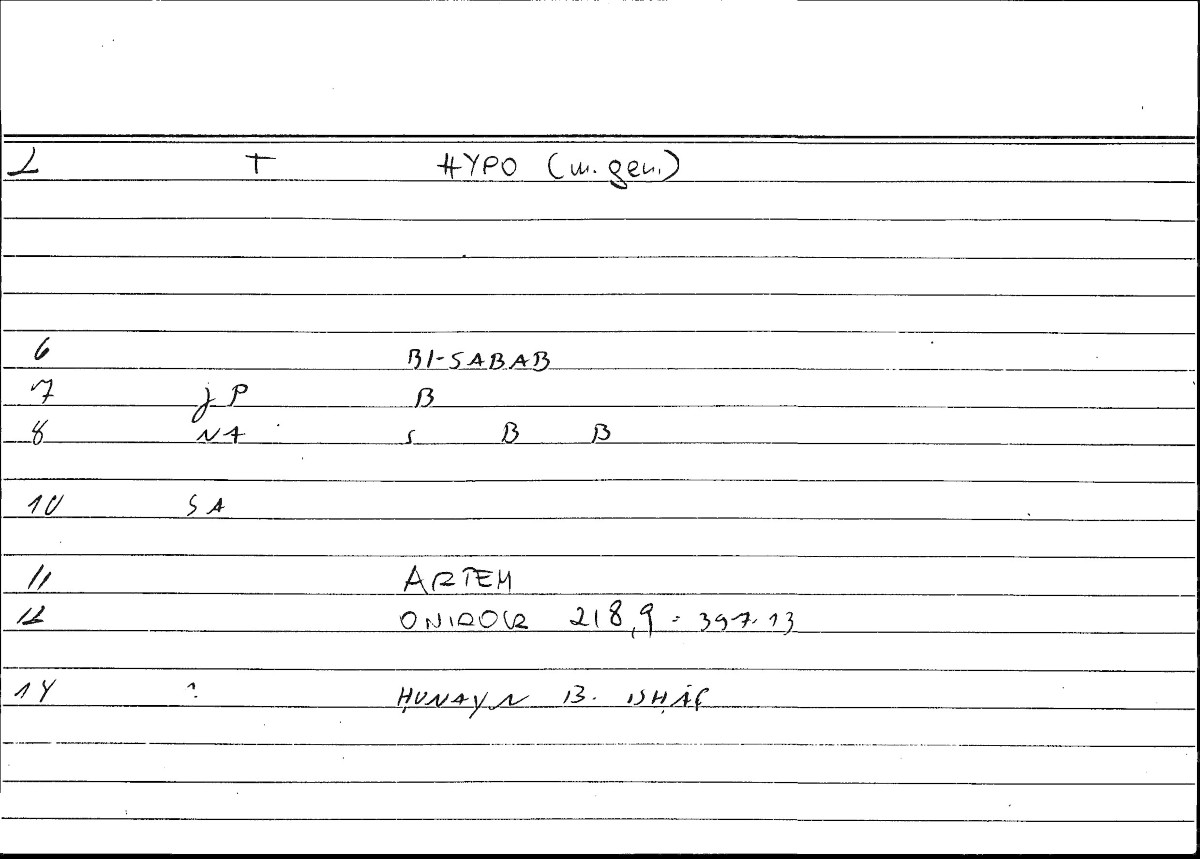 L T HYPO (m. gen.)
6 BI-SABAB
7 jP B
8 NA S B B
10 SA
11 ARTEM
12 ONIROCR 218,9 = 397.13
14 ? ḤUNAYN B. ISḤĀQ